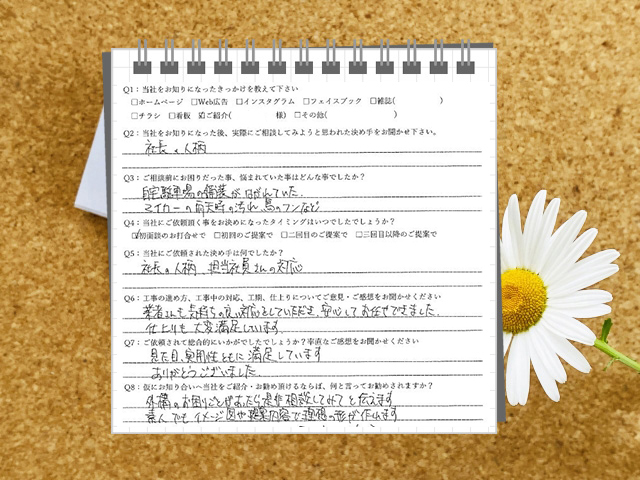 Q1：当社をお知りになったきっかけを教えて下さい
□ホームページ □Web広告 □インスタグラム □フェイスブック □雑誌( )
□チラシ □看板 ☑ご紹介( 様) □その他( )
Q2：当社をお知りになった後、実際にご相談してみようと思われた決め手をお聞かせ下さい。
社長の人柄
Q3：ご相談前にお困りだった事、悩まれていた事はどんな事でしたか？
自宅駐車場の舗装がはがれていた。
マイカーの雨天時の汚れ 鳥のフンなど
Q4：当社にご依頼頂く事をお決めになったタイミングはいつでしたでしょうか？
☑初面談のお打合せで □初回のご提案で □二回目のご提案で □三回目以降のご提案で
Q5：当社にご依頼された決め手は何でしたか？
社長の人柄 担当社員さんの対応
Q6：工事の進め方、工事中の対応、工期、仕上りについてご意見・ご感想をお聞かせください
業者さんも気持ちの良い対応をしていただき、安心してお任せできました。
仕上りも大変満足しています。
Q7：ご依頼されて総合的にいかがでしたでしょうか？率直なご感想をお聞かせください
見た目、実用性ともに満足しています
ありがとうございました
Q8：仮にお知り合いへ当社をご紹介・お勧め頂けるならば、何と言ってお勧めされますか？
外構のお困りごとがあったら是非相談してみてと伝えます
素人でもイメージ図や提案内容で理想の形が作れます